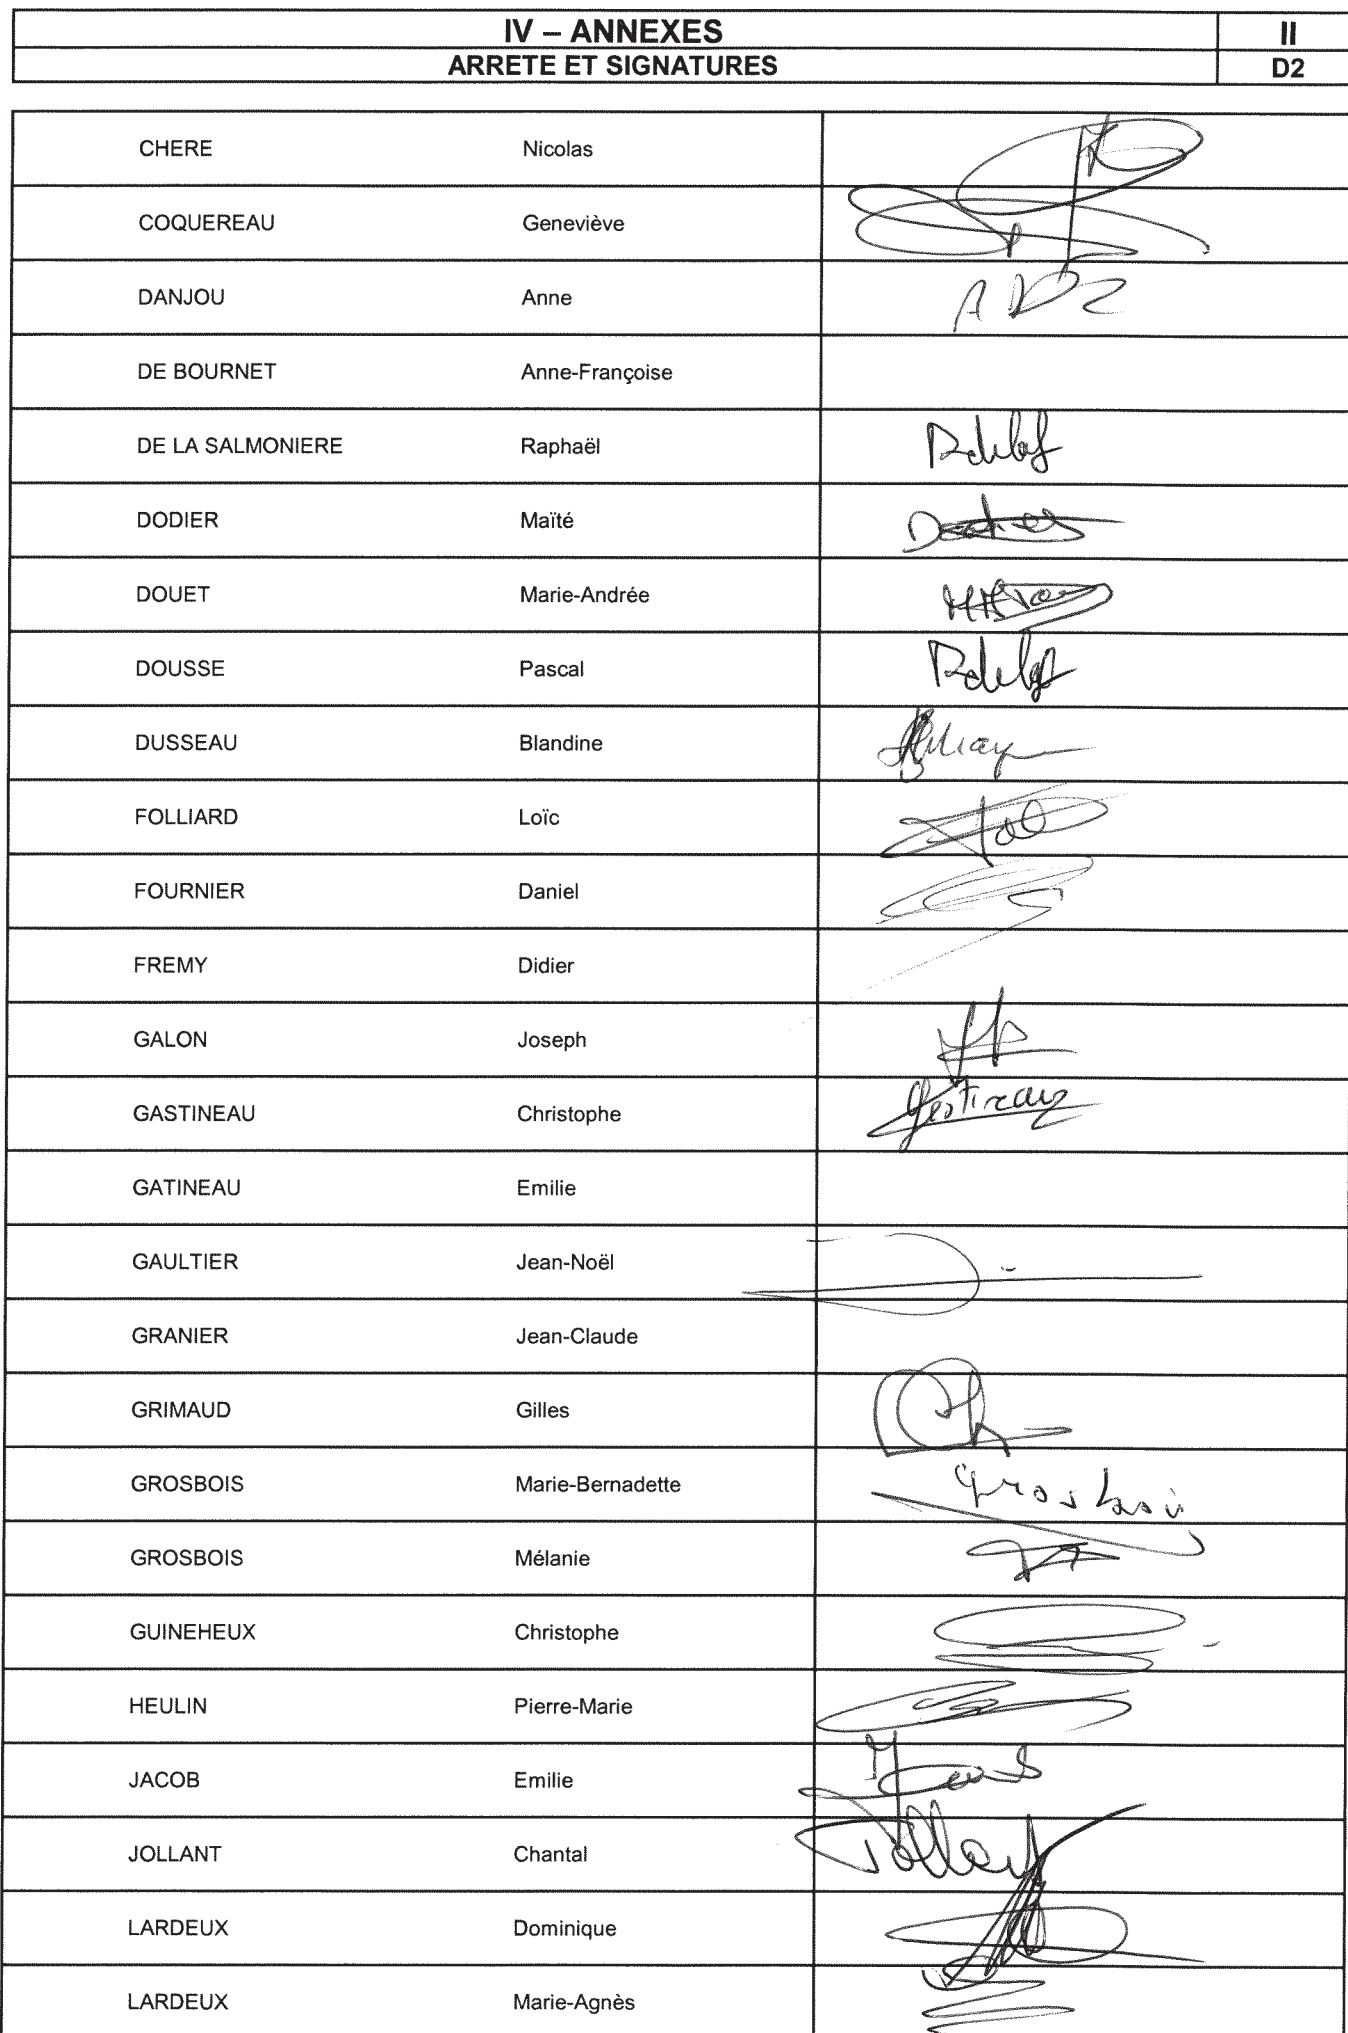 IV – ANNEXES II
ARRETE ET SIGNATURES D2
CHERE Nicolas
COQUEREAU Geneviève
DANJOU Anne
DE BOURNET Anne-Françoise
DE LA SALMONIERE Raphaël
DODIER Maïté
DOUET Marie-Andrée
DOUSSE Pascal
DUSSEAU Blandine
FOLLIARD Loïc
FOURNIER Daniel
FREMY Didier
GALON Joseph
GASTINEAU Christophe Gastineau
GATINEAU Emilie
GAULTIER Jean-Noël
GRANIER Jean-Claude
GRIMAUD Gilles
GROSBOIS Marie-Bernadette Grosbois
GROSBOIS Mélanie
GUINEHEUX Christophe
HEULIN Pierre-Marie
JACOB Emilie
JOLLANT Chantal Jollant
LARDEUX Dominique
LARDEUX Marie-Agnès